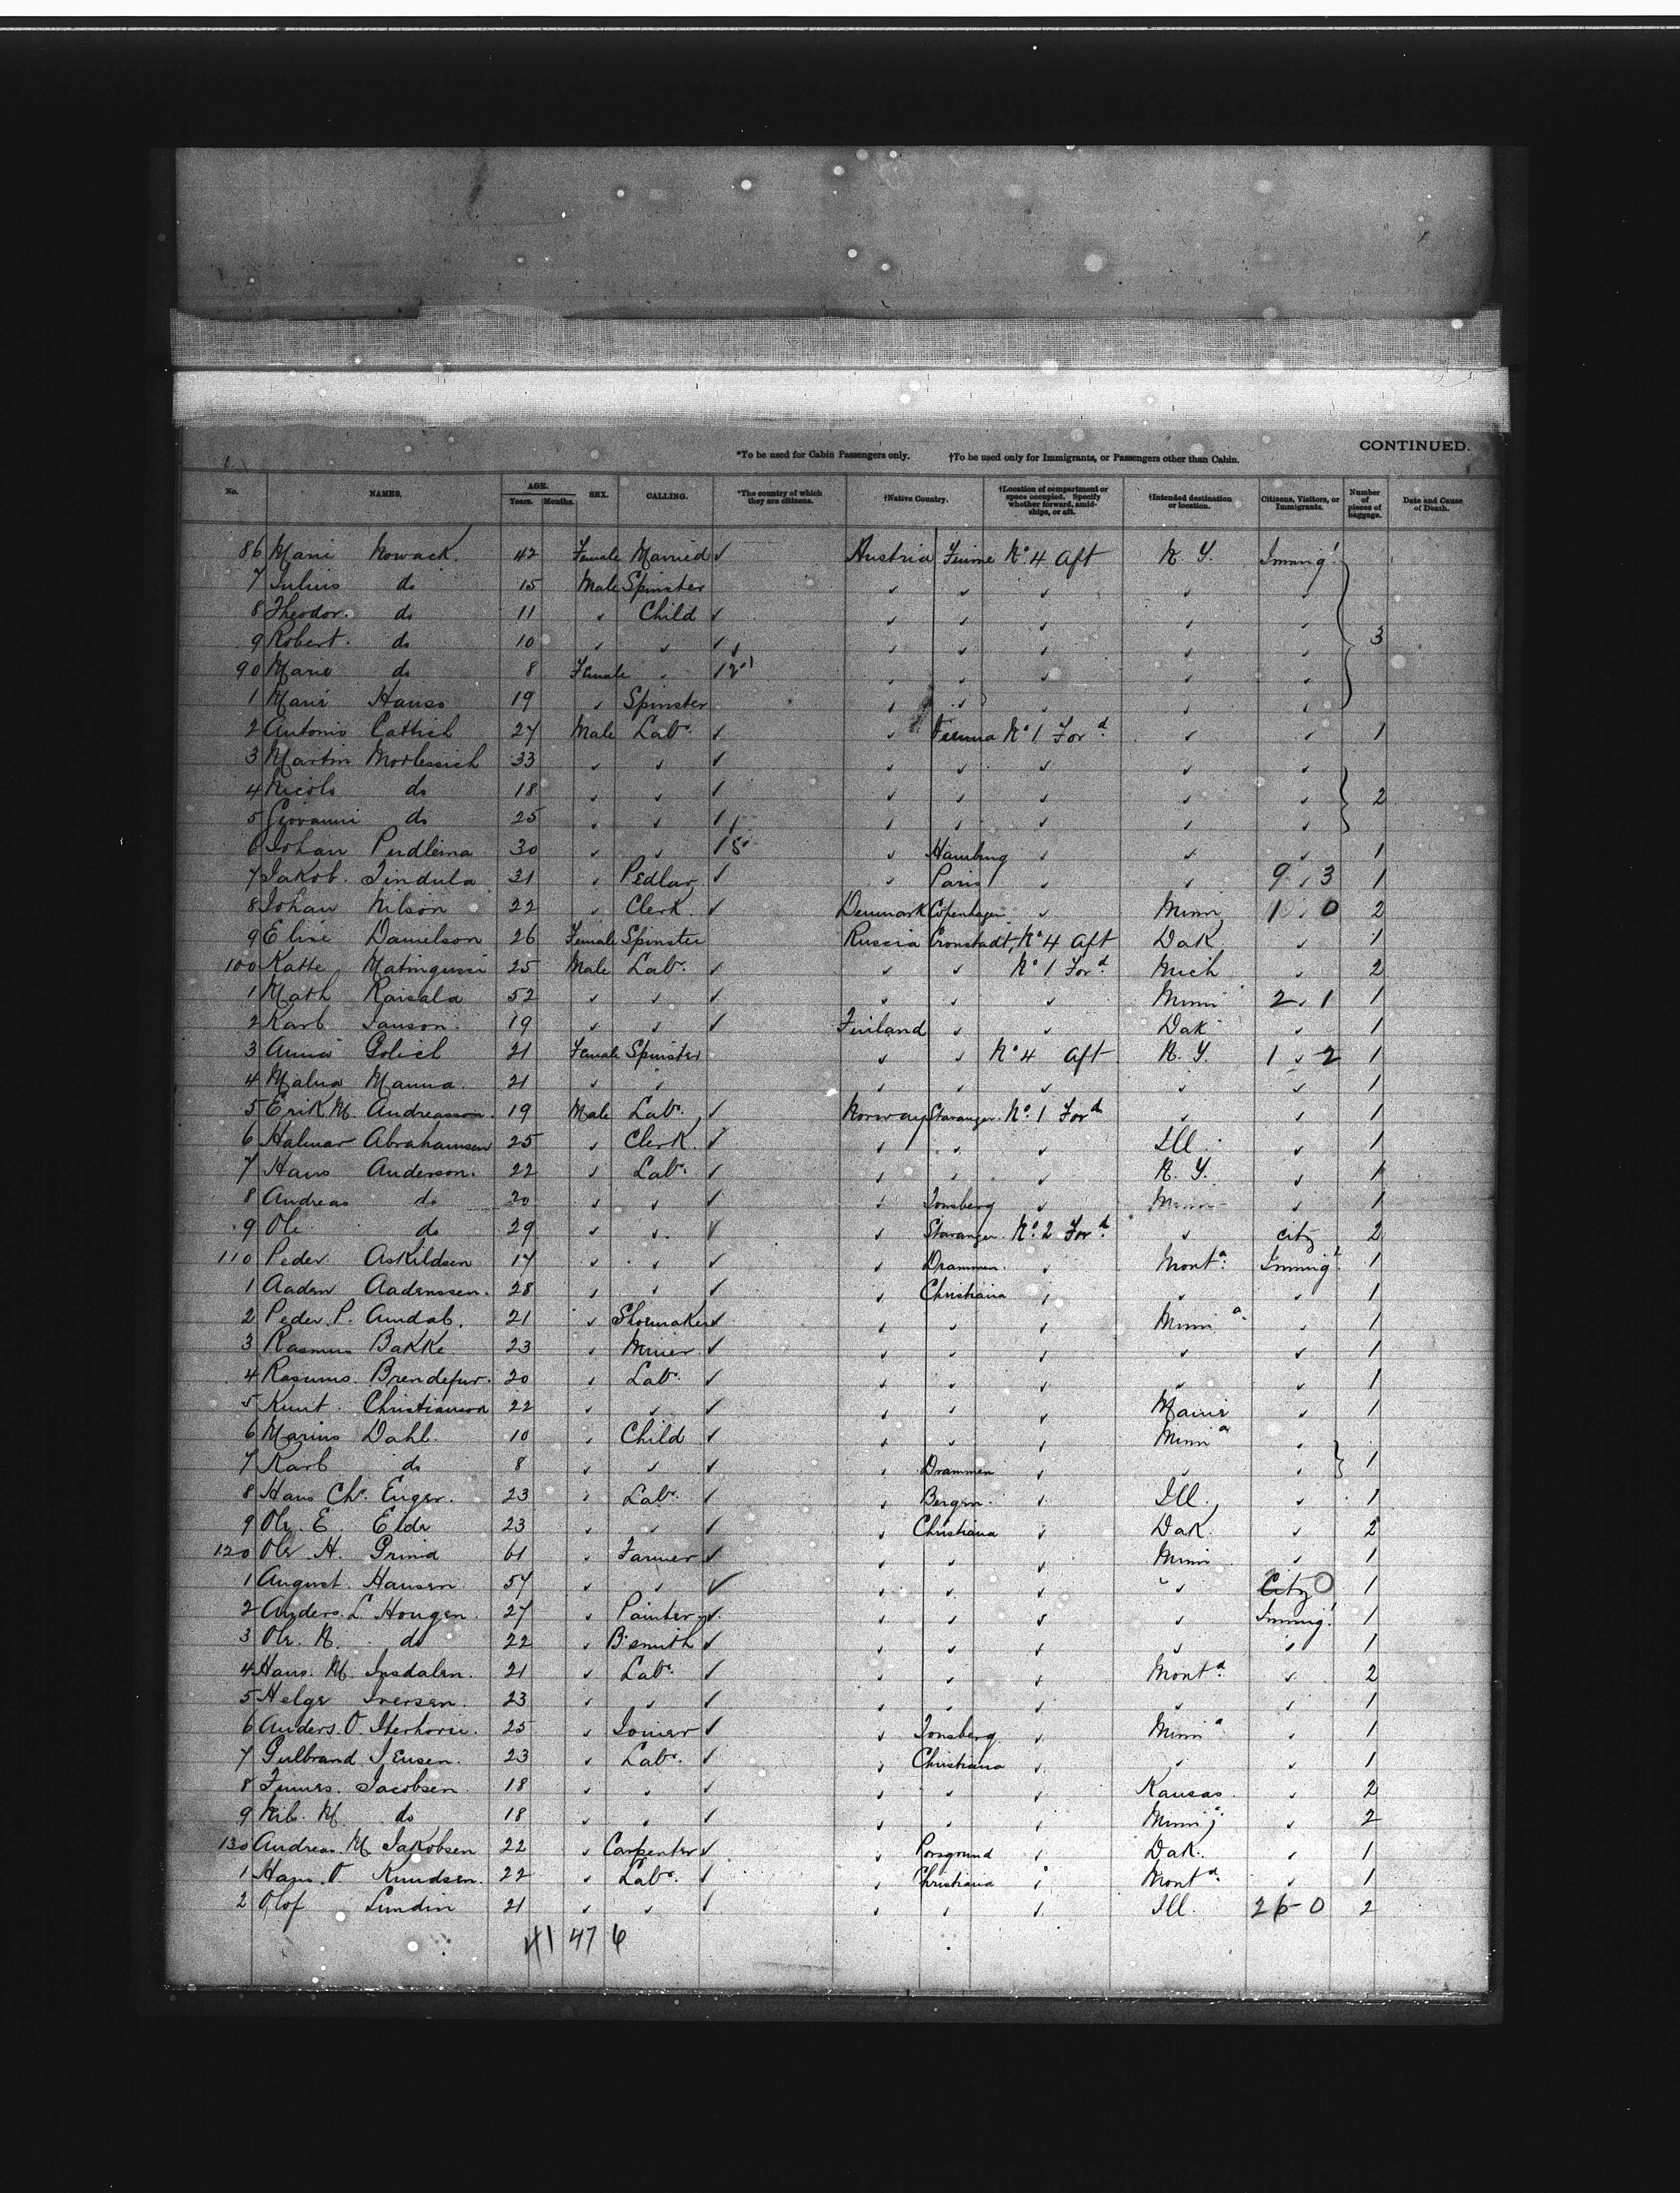 CONTINUED.
*To be used for Cabin Passengers only. †To be used only for Immigrants, or Passengers other than Cabin.
No. NAMES. AGE. Years. Months. SEX. CALLING. *The country of which they are citizens. †Native Country. †Location of compartment or space occupied. Specify whether forward, amidships, or aft. †Intended destination or location. Citizens, Visitors, or Immigrants. Number of pieces of baggage. Date and Cause of Death.
86 Marie Nowack. 42 Female Married ✓ Austria Fiume No. 4 Aft N. Y. Immigt
7 Julius do 15 Male Spinster
8 Theodor. do 11 Child ✓
9 Robert. do 10 ✓ 3
90 Marie do 8 Female
1 Marie 19 Spinster
2 Antonio Cattich 27 Male Labr. ✓ No 1 Ford 1
3 Martin 33 ✓
4 Nicolo do 18 ✓ 2
5 Giovanni do 25 ✓
6 Johan 30 Hamburg 1
7 Jakob. Tindula 31 Pedlar ✓ Paris 9 3 1
8 Johan Nilson 22 Clerk. ✓ Denmark Copenhagen Minn 1 0 2
9 Elise Danielson 26 Female Spinster Russia Cronstadt, No 4 Aft Dak 1
100 Katte 25 Male Labr. ✓ No 1 Ford. Mich 2
1 Math Raisala 52 ✓ Minn 2 1 1
2 Karl Janson. 19 ✓ Finland Dak 1
3 Anna 21 Female Spinster No 4 Aft N. Y. 1 2 1
4 Manna. 21 1
5 Erik M. Andreasson. 19 Male Labr. ✓ Norway Stavanger. No. 1 Ford 1
6 Halmar Abrahamsen 25 Clerk. ✓ Ill. 1
7 Hans Anderson. 22 Labr. ✓ N. Y. 1
8 Andreas do 20 ✓ Tonsberg Minn 1
9 Ole do 29 ✓ Stavanger. No. 2 Ford. city 2
110 Peder. Askildsen 17 ✓ Drammen. Monta. Immigt. 1
1 Aaden Aadenssen. 28 ✓ Christiana 1
2 Peder P. Amdal. 21 Shoemaker ✓ Minna 1
3 Rasmus Bakke. 23 Miner. ✓ 1
4 Rasums. Brendefur. 20 Labr. ✓ 1
5 Knut. Christianson 22 ✓ Maine 1
6 Marius Dahl. 10 Child ✓ Minna
7 Karl do 8 ✓ Drammen 1
8 Hans Chr. Enger. 23 Labr. ✓ Bergen. Ill. 1
9 Ole. E. Eide 23 ✓ Christiana Dak. 2
120 Ole H. Grina 61 Farmer ✓ Minn 1
1 August. Hansen. 57 ✓ City 1
2 Anders. L. Hougen. 27 Painter ✓ Immigt. 1
3 Ole. N. do 22 B.smith ✓ 1
4 Hans. M. Insdalen. 21 Labr. ✓ Monta. 2
5 Helge Iversen. 23 ✓ 1
6 Anders. O. 25 Joiner ✓ Tonsberg Minna 1
7 Gulbrand Jensen. 23 Labr. ✓ Christiana 1
8 Jacobsen. 18 ✓ Kansas. 2
9 M. do 18 ✓ Minn 2
130 Andreas. M. Jakobsen 22 Carpenter ✓ Porsgrund Dak. 1
1 Hans. O. Knudsen. 22 Labr. ✓ Christiana Monta. 1
2 Olof Lundin 21 ✓ Ill. 26 0 2
41 47 6